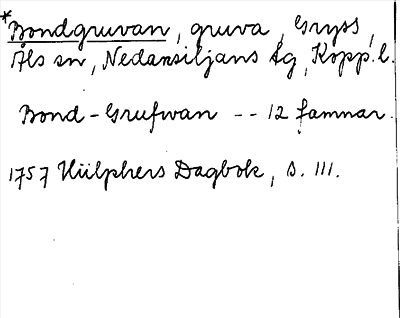 *Bondgruvan, gruva, Gryss,
Åls sn, Nedansiljans tg, Kopp.l.
Bond-Grufwan -- 12 famnar.
1757 Hülphers Dagbok, s. 111.